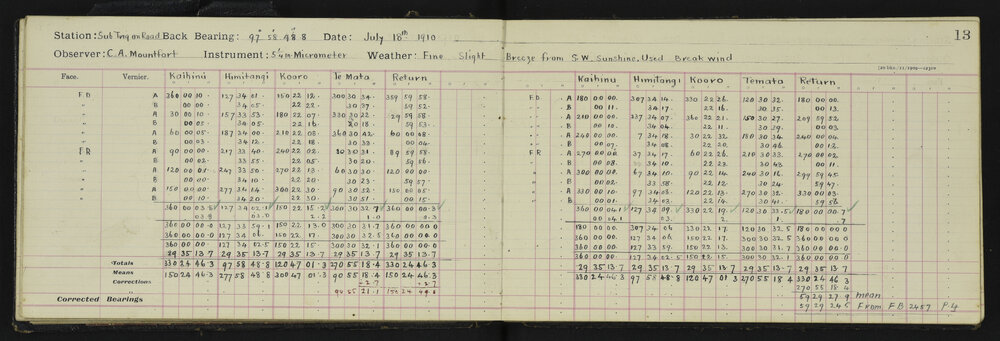 Station: Sub Trig on Road Back Bearing: 97° 58' 48"8 Date: July 18th 1910
13
Observer: C.A. Mountfort Instrument: 5"4in Micrometer Weather: Fine Slight Breeze from S.W. Sunshine. Used Break wind
Face. Vernier. Kaihinu Himitangi Kooro Te Mata Return Kaihinu Himitangi Kooro Temata Return
F.D A 360 00 10 127 34 01 150 22 12 300 30 34 359 59 58 F.D A 180 00 00 307 34 14 330 22 26 120 30 32 180 00 00
B 00 00 34 05 22 22 30 37 59 52 B 00 11 34 17 22 16 30 35 00 13
A 30 00 10 157 33 53 180 22 07 330 30 22 29 59 58 A 210 00 00 337 34 07 360 22 21 150 30 27 209 59 52
B 00 05 34 05 22 16 30 18 59 53 B 00 10 34 04 22 11 30 29 00 03
A 60 00 05 187 34 00 210 22 08 360 30 42 60 00 08 A 240 00 00 7 34 18 30 22 32 180 30 34 240 00 04
B 00 03 34 12 22 18 30 33 00 04 B 00 07 34 08 22 20 30 46 00 12
F.R A 90 00 00 217 33 40 240 22 02 30 30 31 89 59 58 F.R A 270 00 06 37 34 17 60 22 26 210 30 33 270 00 02
B 00 02 33 55 22 05 30 20 59 56 B 00 08 34 10 22 23 30 43 00 11
A 120 00 01 247 33 50 270 22 13 60 30 30 120 00 00 A 300 00 00 67 34 10 90 22 14 240 30 16 299 59 45
B 00 10 34 00 22 20 30 23 59 57 B 00 02 33 58 22 12 30 24 59 47
A 150 00 00 277 34 14 300 22 30 90 30 52 150 00 05 A 330 00 10 97 34 08 120 22 13 270 30 32 330 00 03
B 00 10 34 20 22 30 30 51 00 15 B 00 01 34 03 22 14 30 41 59 56
360 00 03.8 127 34 02.1 150 22 15.2 300 30 32.7 360 00 00.3 360 00 04.1 127 34 09 330 22 19 120 30 32.5 180 00 00.7
03.8 03.0 2.2 1.0 0.3 00 04.1 03 2
360 00 00.0 127 33 59.1 150 22 13.0 300 30 31.7 360 00 00.0 180 00 00 307 34 06 330 22 17 120 30 32.5 180 00 00
360 00 00 127 34 06 150 22 17 300 30 32.5 360 00 00.0 360 00 00 127 34 06 150 22 17 300 30 32.5 360 00 00
360 00 00 127 33 59 150 22 13 300 30 31.7 360 00 00
360 00 00 127 34 02.5 150 22 15 300 30 32.1 360 00 00.0 360 00 00 127 34 02.5 150 22 15 300 30 32.1 360 00 00
29 35 13.7 29 35 13.7 29 35 13.7 29 35 13.7 29 35 13.7 29 35 13.7 29 35 13.7 29 35 13.7 29 35 13.7 29 35 13.7
Totals 330 24 46.3 97 58 48.8 120 47 01.3 270 55 18.4 330 24 46.3 330 24 46.3 97 58 48.8 120 47 01.3 270 55 18.4 330 24 46.3
Means 150 24 46.3 277 58 48.8 300 47 01.3 90 55 18.4 150 24 46.3 270 55 18.4
Corrections +2.7 +2.7 59 29 27.9 mean
90 55 21.1 150 24 49.0 59 29 24.5 From F.B 2457 P.4
Corrected Bearings